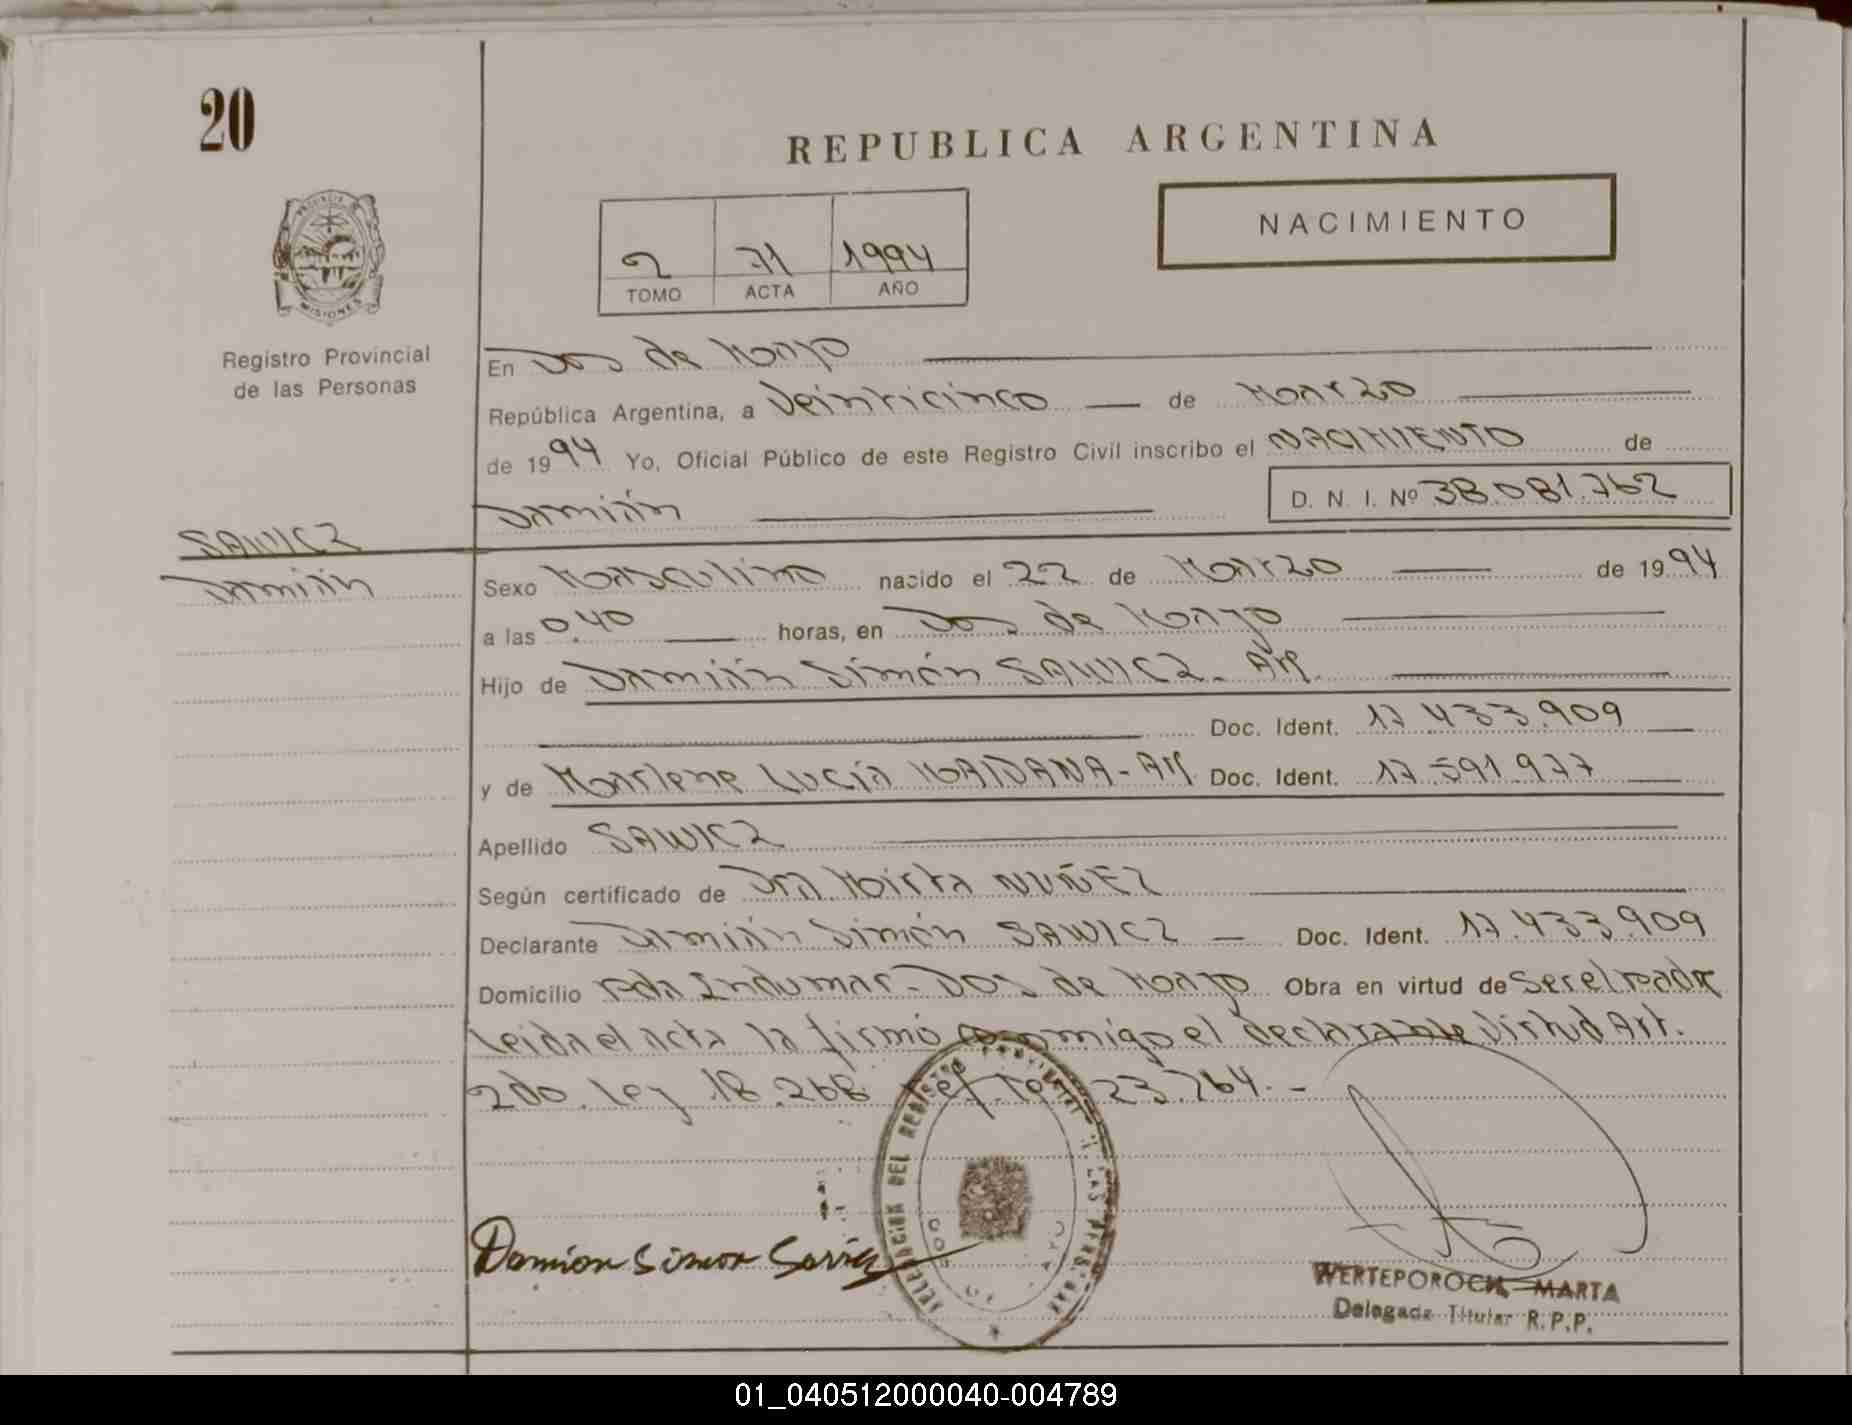 20
REPUBLICA ARGENTINA
NACIMIENTO
2 71 1994
TOMO ACTA AÑO
PROVINCIA DE
MISIONES
Registro Provincial
de las Personas
En Dos de Mayo
República Argentina, a Veinticinco de Marzo
de 1994 Yo, Oficial Público de este Registro Civil inscribo el NACIMIENTO de
Damián D. N. I. Nº 38.081.762
SAWICZ
Damián
Sexo Masculino nacido el 22 de Marzo de 1994
a las 0.40 horas, en Dos de Mayo
Hijo de Damián Simón SAWICZ - Arg.
Doc. Ident. 17.433.909
y de Marlene Lucía MAIDANA - Arg. Doc. Ident. 17.591.977
Apellido SAWICZ
Según certificado de Dra Mirta NUÑEZ
Declarante Damián Simón SAWICZ - Doc. Ident. 17.433.909
Domicilio Indumar - Dos de Mayo Obra en virtud de ser el padre
leida el acta la firmó conmigo el declarante Virtud Art.
2do. ley 18.268 ref. 23.764. -
Damian Simon Sawicz
DELEGACION DEL REGISTRO PROVINCIAL LAS PERSONAS
WERTEPOROCH, MARTA
Delegada Titular R.P.P.
01_040512000040-004789